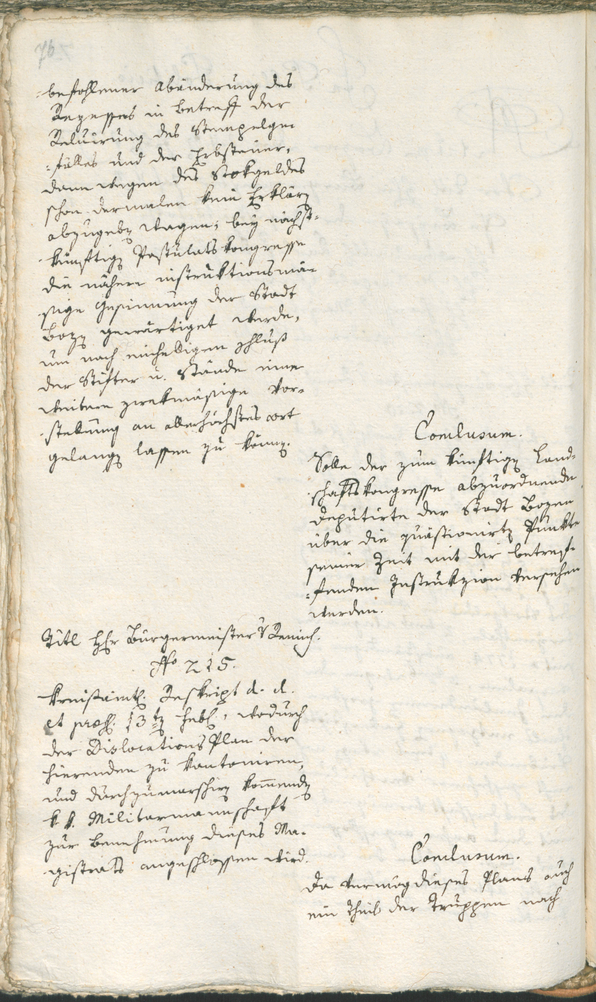 76
befohlener Abänderung des
Rezesses in Betreff der
Reluirung des Stempelge-
fälles und der Erbsteuer,
dann wegen des Stokgeldes
schon dermalen kein Erklärg
abzugebn wagen; bey nächst-
künftign Postulatskongresse
die nähere instruktionsmä-
ssige Gesinnung der Stadt
Bozn gewärtiget werde,
um nach einhelligem Schluß
der Stifter u. Stände eine
weitere zwekmäsige Vor-
stellung an allerhöchstes Ort
gelangn lassen zu könn.
Conclusum.
Solle der zum künftign Land-
schaftskongresse abzuordnende
Deputirte der Stadt Bozen
über die quästionirtn Punkte
seiner Zeit mit der betref-
fenden Instrukzion versehen
werden.
Titl Hr Bürgermeister
No 215.
Kreisämtl. Reskript d. d.
et praes. 13tn hebl, wodurch
der Dislocations Plan der
hierenden zu kantoniren,
und durchzumarschirn kommendn
k. k. Militarmannschaft
zur Benehmung dieses Ma-
gistrats angeschlossen wird.
Conclusum.
Da vermög dieses Plans auch
ein Theil der Truppen nach